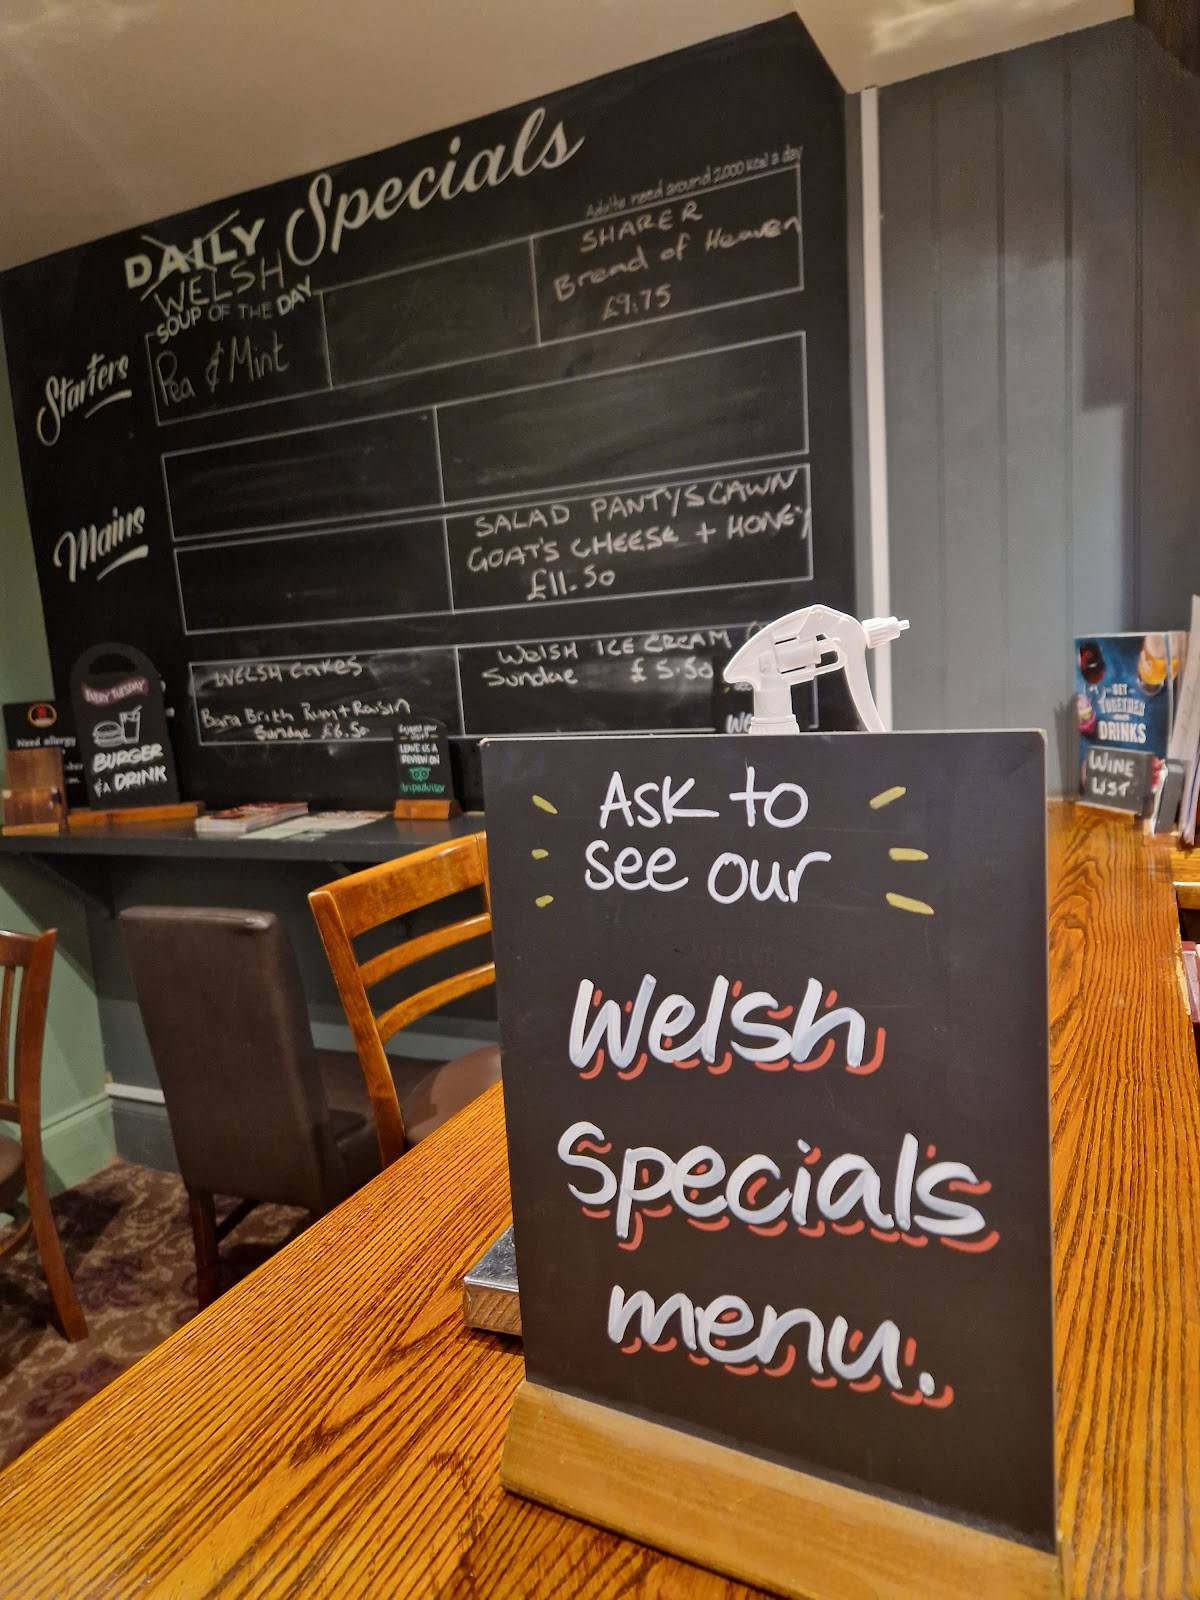 DAILY Specials
WELSH
Adults need around 2000 kcal a day
Starters
SOUP OF THE DAY
Pea & Mint
SHARER
Bread of Heaven
£9.75
Mains
SALAD PANTYSGAWN
GOAT'S CHEESE + HONEY
£11.50
WELSH CAKES
Bara Brith Rum + Raisin
Sundae £6.50
WELSH ICE CREAM
Sundae £5.50
EVERY TUESDAY
BURGER
& A DRINK
Need allergy
LEAVE US A
REVIEW ON
tripadvisor
GET
TOGETHER
DRINKS
WINE
LIST
ASK to
see our
Welsh
Specials
menu.